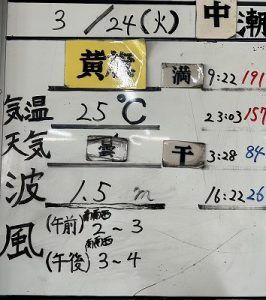 3/24(火) 中潮
黄濁 満 9:22 191
気温 25℃ 23:03 157
天気 曇 干 3:28 84
波 1.5 m 16:22 26
風 (午前) 南南西 2~3
(午後) 南南西 3~4